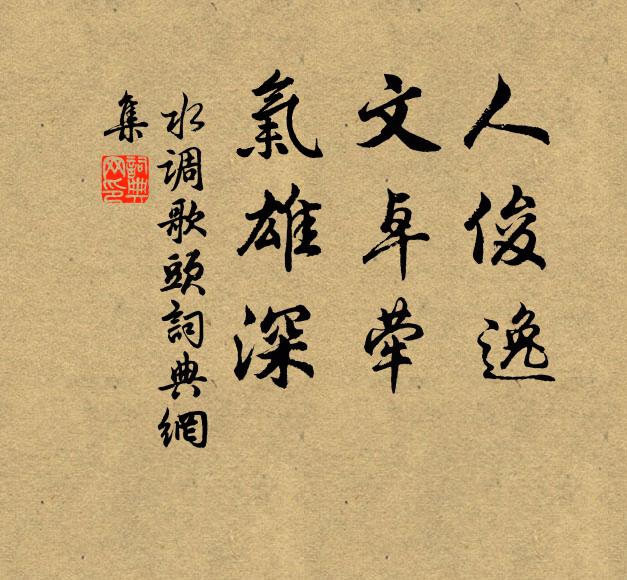 人俊逸
文卓荦
氣雄深
水调歌頭詞典網
集
詞典
网印